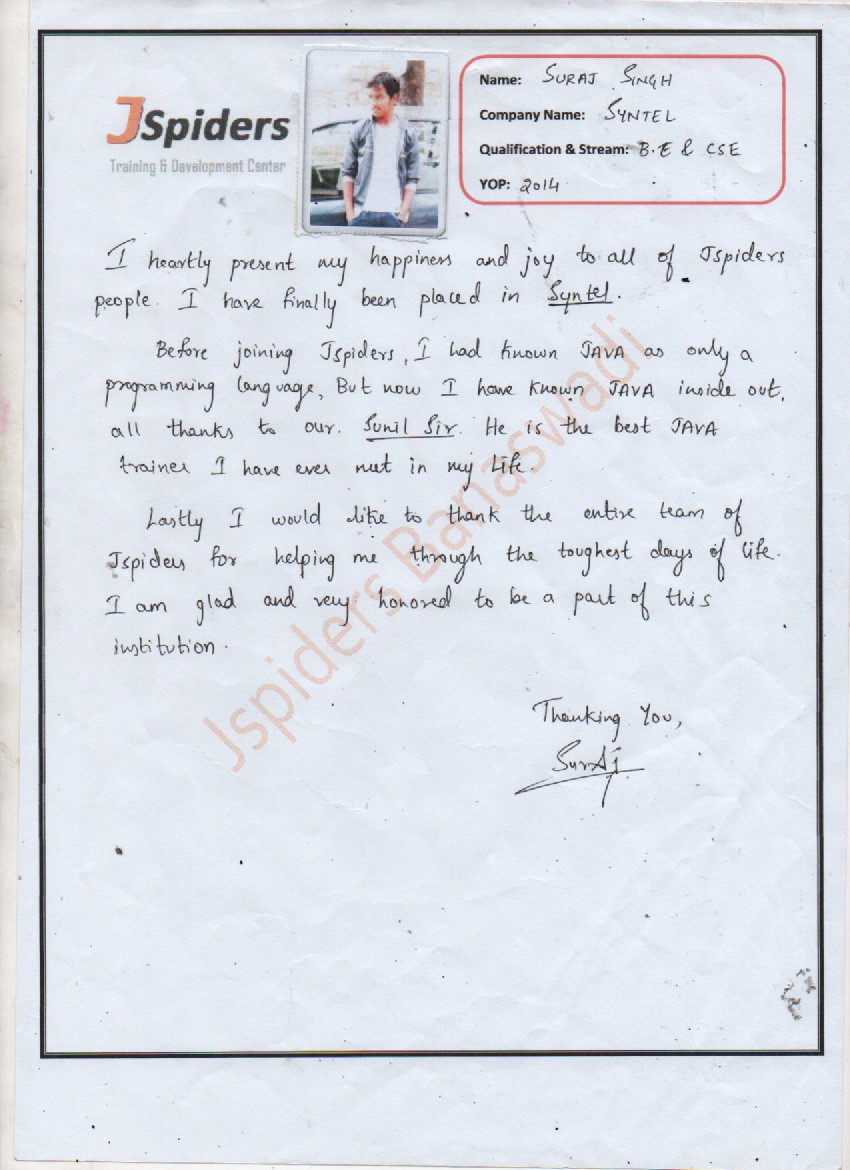 JSpiders
Training & Development Center
Name: SURAJ SINGH
Company Name: SYNTEL
Qualification & Stream: B.E & CSE
YOP: 2014
I heartly present my happiness and joy to all of Jspiders
people. I have finally been placed in Syntel.
Before joining Jspiders, I had known JAVA as only a
programming language, But now I have known JAVA inside out,
all thanks to our. Sunil Sir. He is the best JAVA
trainer I have ever met in my life.
Lastly I would like to thank the entire team of
Jspiders for helping me through the toughest days of life.
I am glad and very honored to be a part of this
institution.
Thanking You,
SurAj
Jspiders Banaswadi